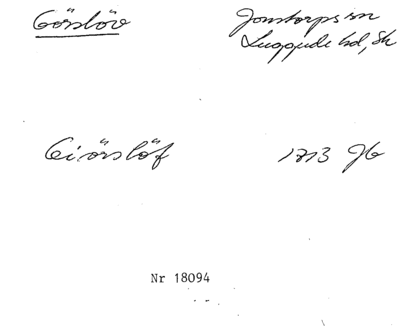 Görslöv
Jonstorps sn
Luggude hd, Sk
Giörslöf
1713 Jb
Nr 18094